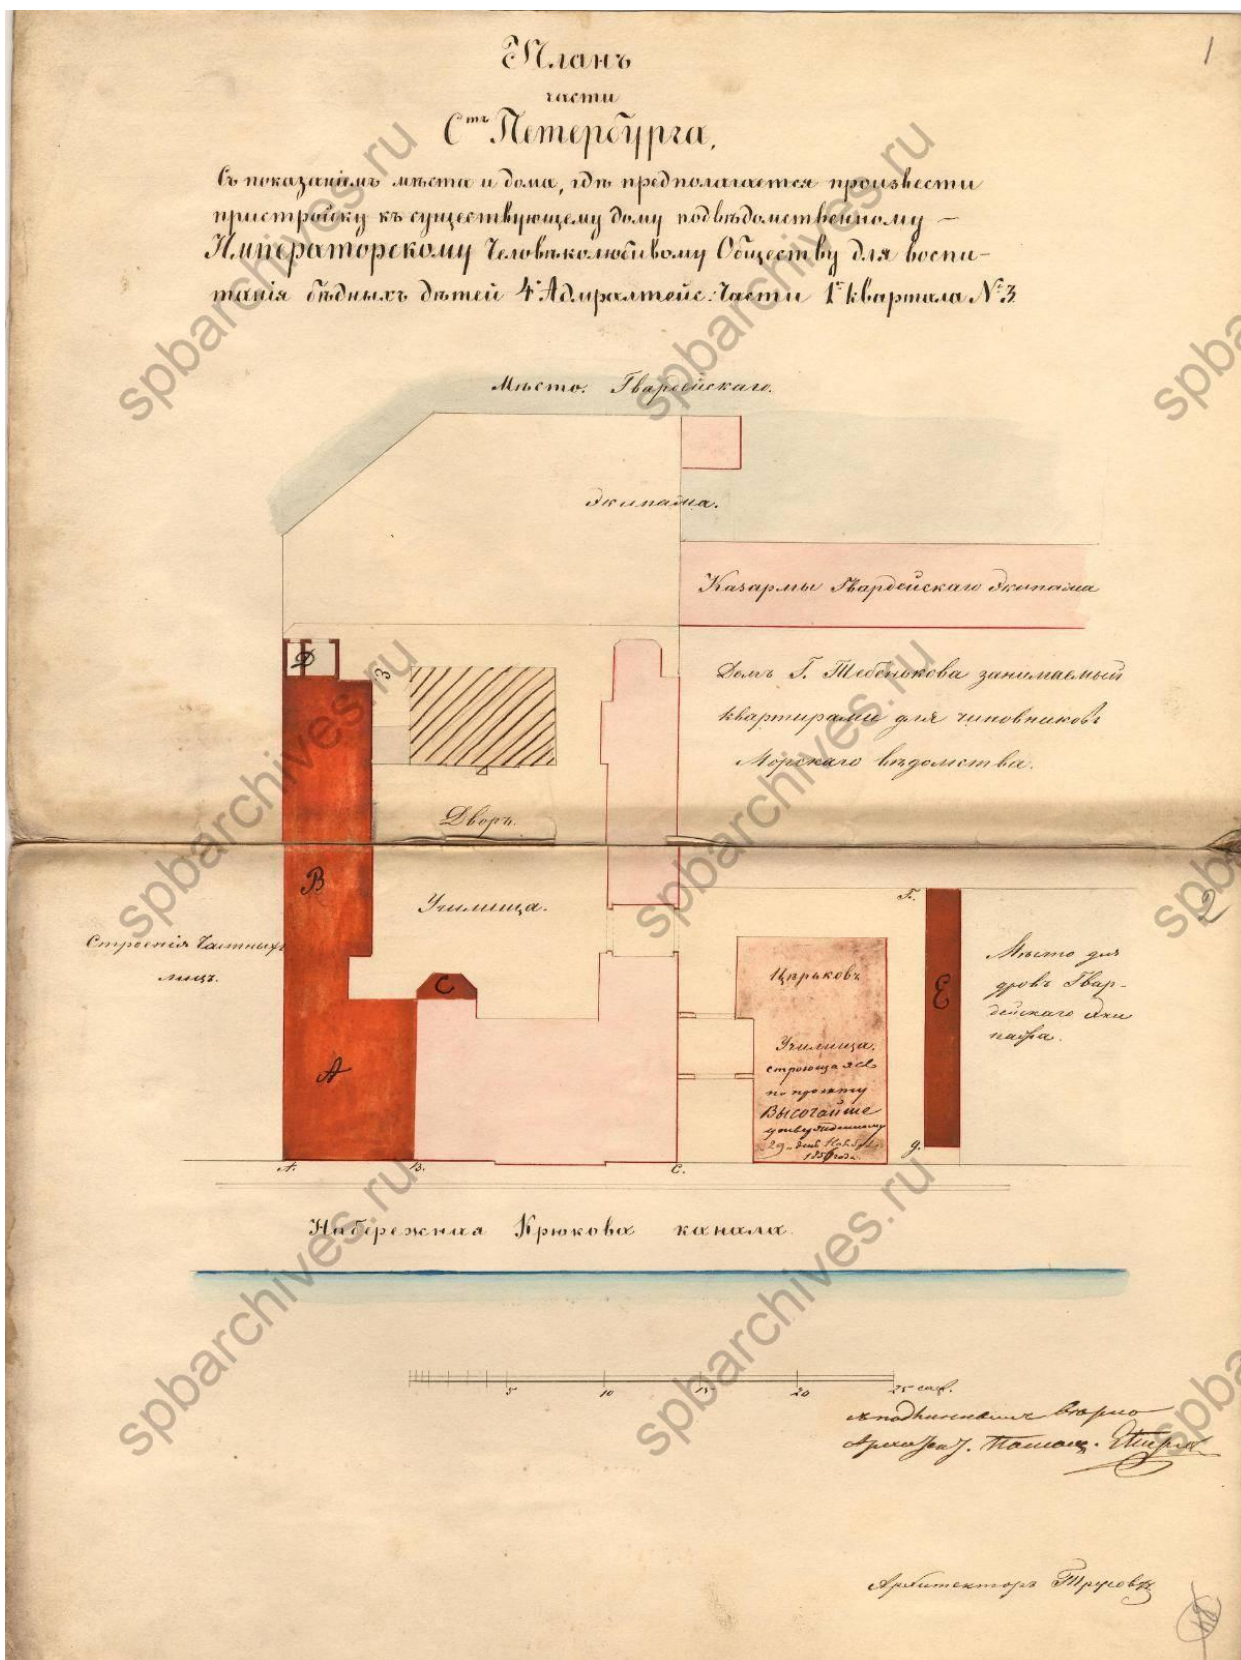 1
Планъ
части
С.тъ Петербурга,
Съ показаніемъ мѣста и дома, гдѣ предполагается произвести
пристройку къ существующему дому подвѣдомственному –
Императорскому Человѣколюбивому Обществу для воспи-
танія бѣдныхъ дѣтей 4й Адмиралтейс: Части 1го квартала № 3
Мѣсто. Гвардейскаго.
Экипажа.
Казармы Гвардейскаго Экипажа
Домъ Г. Тебенькова занимаемый
квартирами для чиновниковъ
Морскаго вѣдомства.
Д
З
Дворъ.
В
Училища.
Строенія Частныхъ
лицъ.
С
А
Церьковъ
Училища.
строющаяся
по проэкту
Высочайше
утвержденному
29 дня Ноября
185 года.
F.
Е
g.
Мѣсто для
дровъ Гвар-
дейскаго Эки
пажа.
2
А.
В.
С.
Набережная Крюкова канала.
5 10 15 20 25 саж.
съ подлиннымъ вѣрно
Архитекторъ Трусовъ
spbarchives.ru
spbarchives.ru
spbarchives.ru
spbarchives.ru
spbarchives.ru
spbarchives.ru